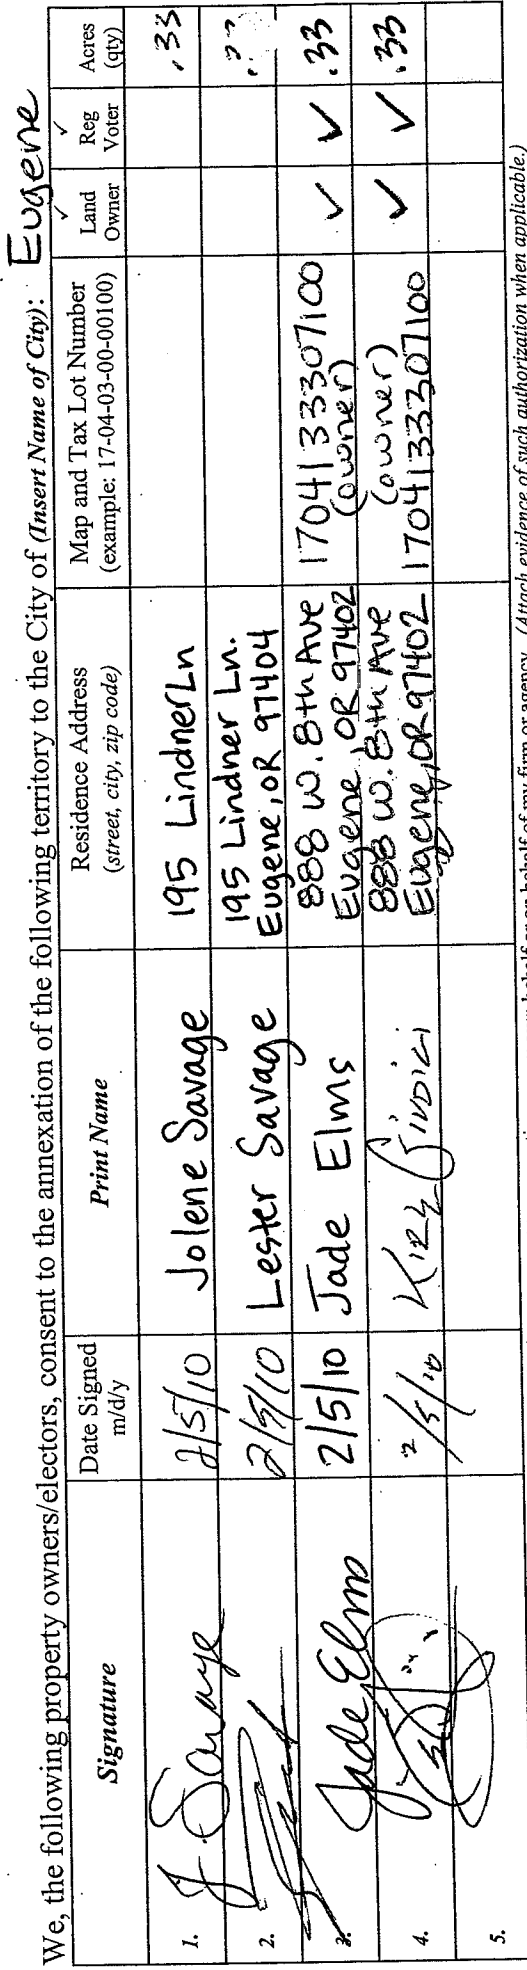 We, the following property owners/electors, consent to the annexation of the following territory to the City of (Insert Name of City): Eugene
Signature
Date Signed
m/d/y
Print Name
Residence Address
(street, city, zip code)
Map and Tax Lot Number
(example: 17-04-03-00-00100)
✓
Land
Owner
✓
Reg
Voter
Acres
(qty)
1. J. Savage 2/5/10 Jolene Savage 195 Lindner Ln .33
2. 2/5/10 Lester Savage 195 Lindner Ln.
Eugene, OR 97404
3. Jade Elms 2/5/10 Jade Elms 888 W. 8th Ave 1704133307100 ✓ ✓ .33
Eugene, OR 97402 (owner)
4. 2/5/10 888 W. 8th Ave (owner) ✓ ✓ .33
Eugene, OR 97402 1704133307100
5.
behalf or on behalf of my firm or agency. (Attach evidence of such authorization when applicable.)